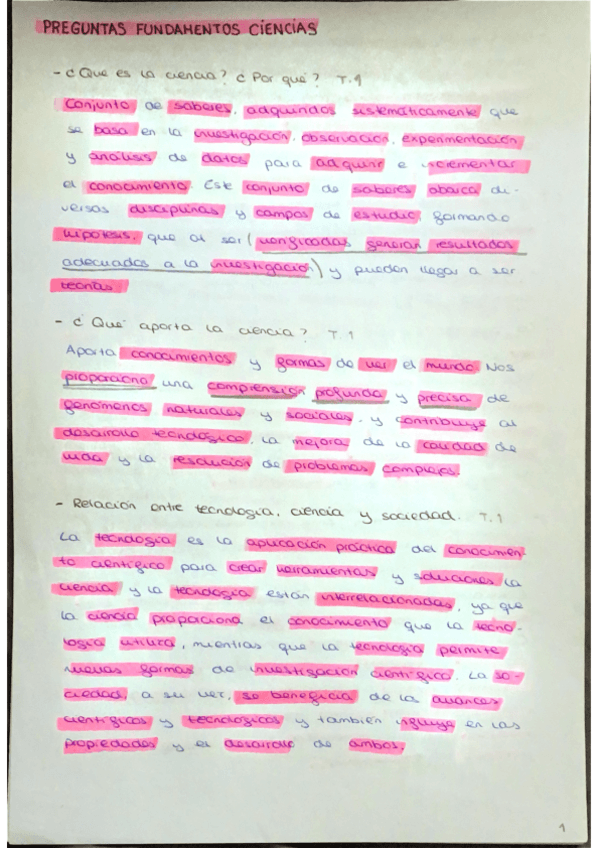 PREGUNTAS FUNDAMENTOS CIENCIAS
- ¿ Que es la ciencia? ¿ Por qué? T.1
Conjunto de saberes, adquiridos sistemáticamente que
se basa en la investigación, observación, experimentación
y análisis de datos para adquirir e incrementar
el conocimiento. Este conjunto de saberes abarca di-
versas disciplinas y campos de estudio, formando
hipótesis, que al ser (verificadas generan resultados
adecuados a la investigación) y pueden llegar a ser
teorías.
- ¿ Qué aporta la ciencia? T.1
Aporta conocimientos y formas de ver el mundo. Nos
proporciona una comprensión profunda y precisa de
fenómenos naturales y sociales, y contribuye al
desarrollo tecnológico, la mejora de la calidad de
vida y la resolución de problemas complejos.
- Relación entre tecnología, ciencia y sociedad. T.1
La tecnología es la aplicación práctica del conocimien-
to científico para crear herramientas y soluciones. La
ciencia y la tecnología están interrelacionadas, ya que
la ciencia proporciona el conocimiento que la tecno-
logía utiliza, mientras que la tecnología permite
nuevas formas de investigación científica. La so-
ciedad, a su ver, se beneficia de los avances
científicos y tecnológicos y también influye en las
propiedades y el desarrollo de ambos.
1